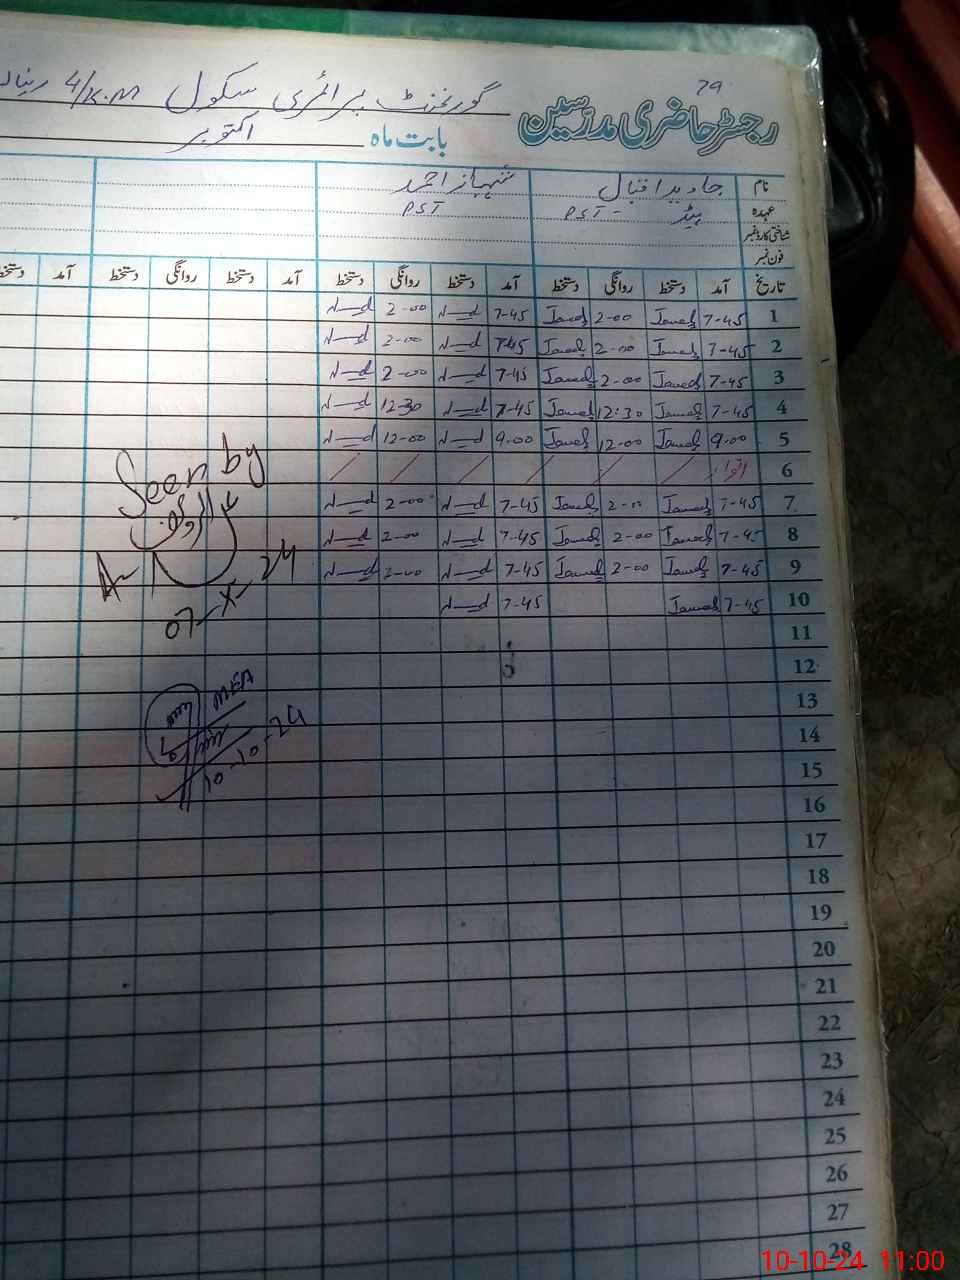 79
رجسٹر حاضری مدرسین گورنمنٹ پرائمری سکول 4/K.M رینالہ
بابت ماہ اکتوبر
نام جاوید اقبال شہباز احمد
عہدہ ہیڈ PST - PST
شناختی کارڈ نمبر
فون نمبر
تاریخ آمد دستخط روانگی دستخط آمد دستخط روانگی دستخط آمد دستخط روانگی دستخط آمد دستخط
1 7-45 Javed 2-00 Javed 7-45 2-00
2 7-45 Javed 2-00 Javed 7-45 2-00
3 7-45 Javed 2-00 Javed 7-45 2-00
4 7-45 Javed 12:30 Javed 7-45 12-30
5 9-00 Javed 12-00 Javed 9-00 12-00
6 اتوار
7 7-45 Javed 2-00 Javed 7-45 2-00
8 7-45 Javed 2-00 Javed 7-45 2-00
9 7-45 Javed 2-00 Javed 7-45 2-00
10 7-45 Javed 7-45
11
12
13
14
15
16
17
18
19
20
21
22
23
24
25
26
27
28
Seen by
07-X-24
MEA
10-10-24
10-10-24 11:00